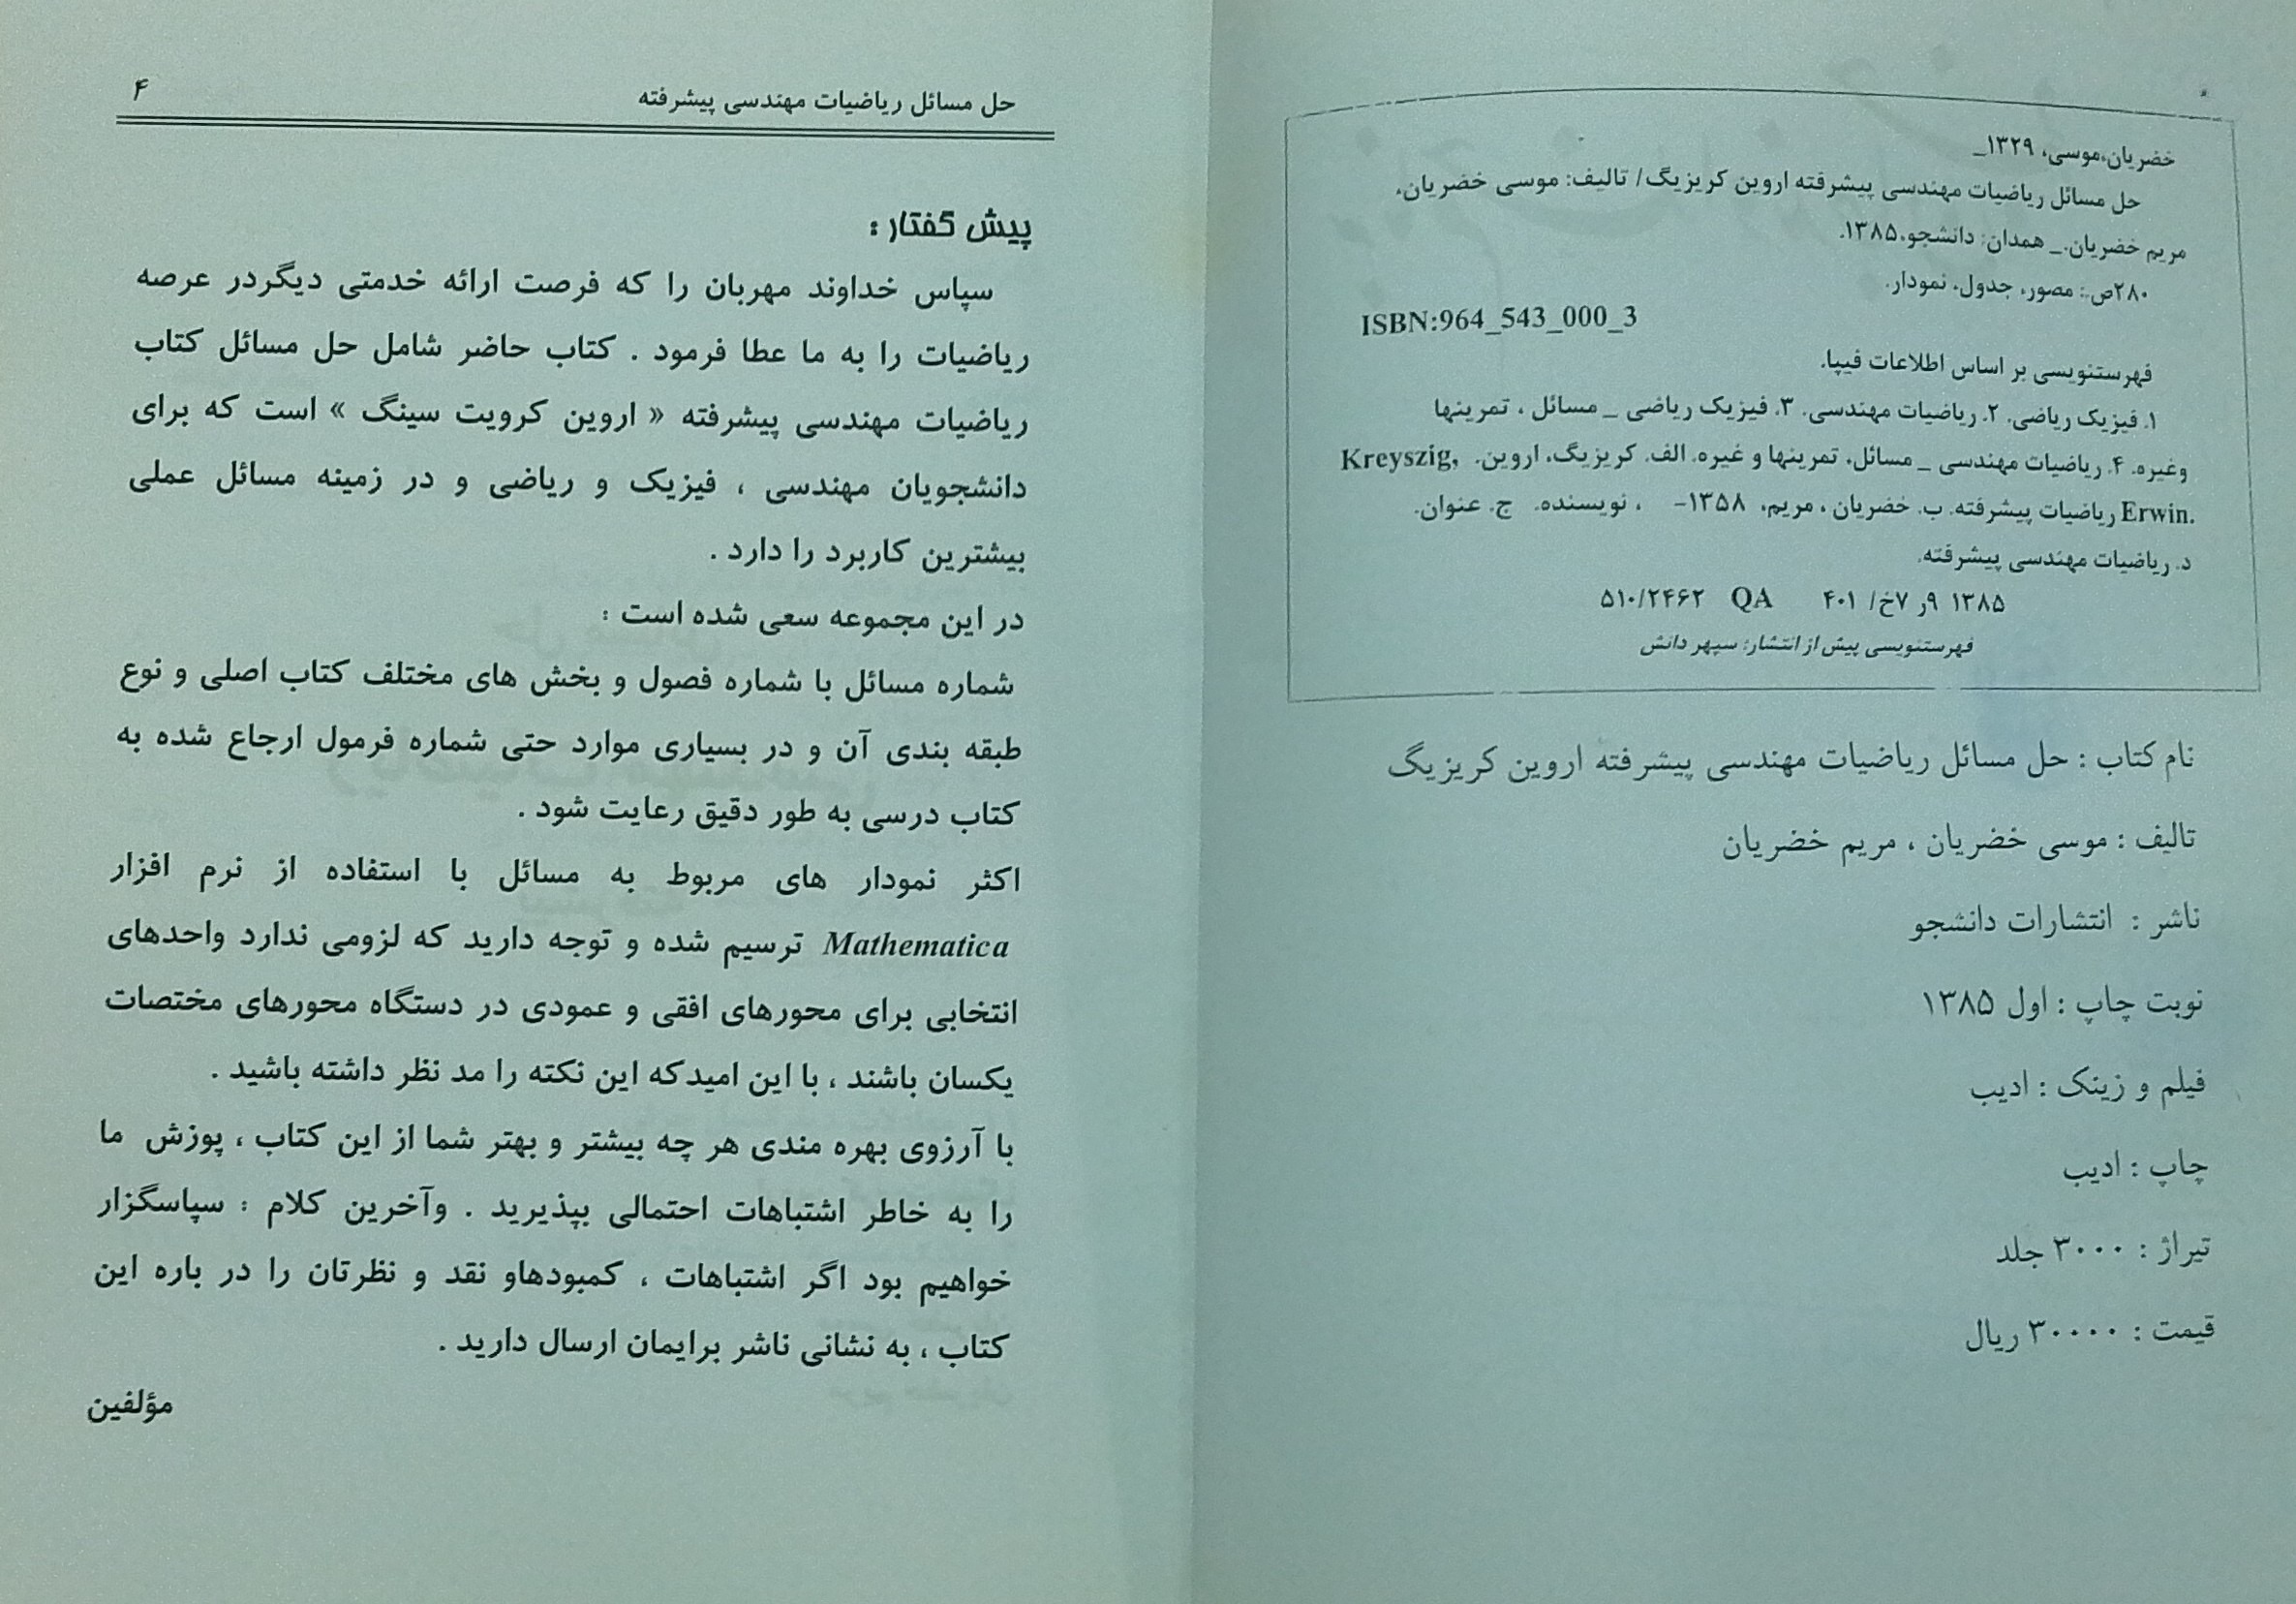 خضریان،موسی، ۱۳۲۹_
حل مسائل ریاضیات مهندسی پیشرفته اروین کریزیگ/ تالیف: موسی خضریان،
مریم خضریان._ همدان: دانشجو،۱۳۸۵.
۲۸۰ص.: مصور، جدول، نمودار.
ISBN:964_543_000_3
فهرستنویسی بر اساس اطلاعات فیپا.
۱. فیزیک ریاضی. ۲. ریاضیات مهندسی. ۳. فیزیک ریاضی _ مسائل ، تمرینها
وغیره. ۴. ریاضیات مهندسی _ مسائل، تمرینها و غیره. الف. کریزیگ، اروین. Kreyszig,
Erwin. ریاضیات پیشرفته. ب. خضریان ، مریم، ۱۳۵۸- ، نویسنده. ج. عنوان.
د. ریاضیات مهندسی پیشرفته.
۱۳۸۵ ۹ر ۷خ/ ۴۰۱ QA ۵۱۰/۲۴۶۲
فهرستنویسی پیش از انتشار: سپهر دانش
نام کتاب : حل مسائل ریاضیات مهندسی پیشرفته اروین کریزیگ
تالیف : موسی خضریان ، مریم خضریان
ناشر : انتشارات دانشجو
نوبت چاپ : اول ۱۳۸۵
فیلم و زینک : ادیب
چاپ : ادیب
تیراژ : ۳۰۰۰ جلد
قیمت : ۳۰۰۰۰ ریال
حل مسائل ریاضیات مهندسی پیشرفته ۴
پیش گفتار :
سپاس خداوند مهربان را که فرصت ارائه خدمتی دیگردر عرصه
ریاضیات را به ما عطا فرمود . کتاب حاضر شامل حل مسائل کتاب
ریاضیات مهندسی پیشرفته « اروین کرویت سینگ » است که برای
دانشجویان مهندسی ، فیزیک و ریاضی و در زمینه مسائل عملی
بیشترین کاربرد را دارد .
در این مجموعه سعی شده است :
شماره مسائل با شماره فصول و بخش های مختلف کتاب اصلی و نوع
طبقه بندی آن و در بسیاری موارد حتی شماره فرمول ارجاع شده به
کتاب درسی به طور دقیق رعایت شود .
اکثر نمودار های مربوط به مسائل با استفاده از نرم افزار
Mathematica ترسیم شده و توجه دارید که لزومی ندارد واحدهای
انتخابی برای محورهای افقی و عمودی در دستگاه محورهای مختصات
یکسان باشند ، با این امیدکه این نکته را مد نظر داشته باشید .
با آرزوی بهره مندی هر چه بیشتر و بهتر شما از این کتاب ، پوزش ما
را به خاطر اشتباهات احتمالی بپذیرید . وآخرین کلام : سپاسگزار
خواهیم بود اگر اشتباهات ، کمبودهاو نقد و نظرتان را در باره این
کتاب ، به نشانی ناشر برایمان ارسال دارید .
مؤلفین